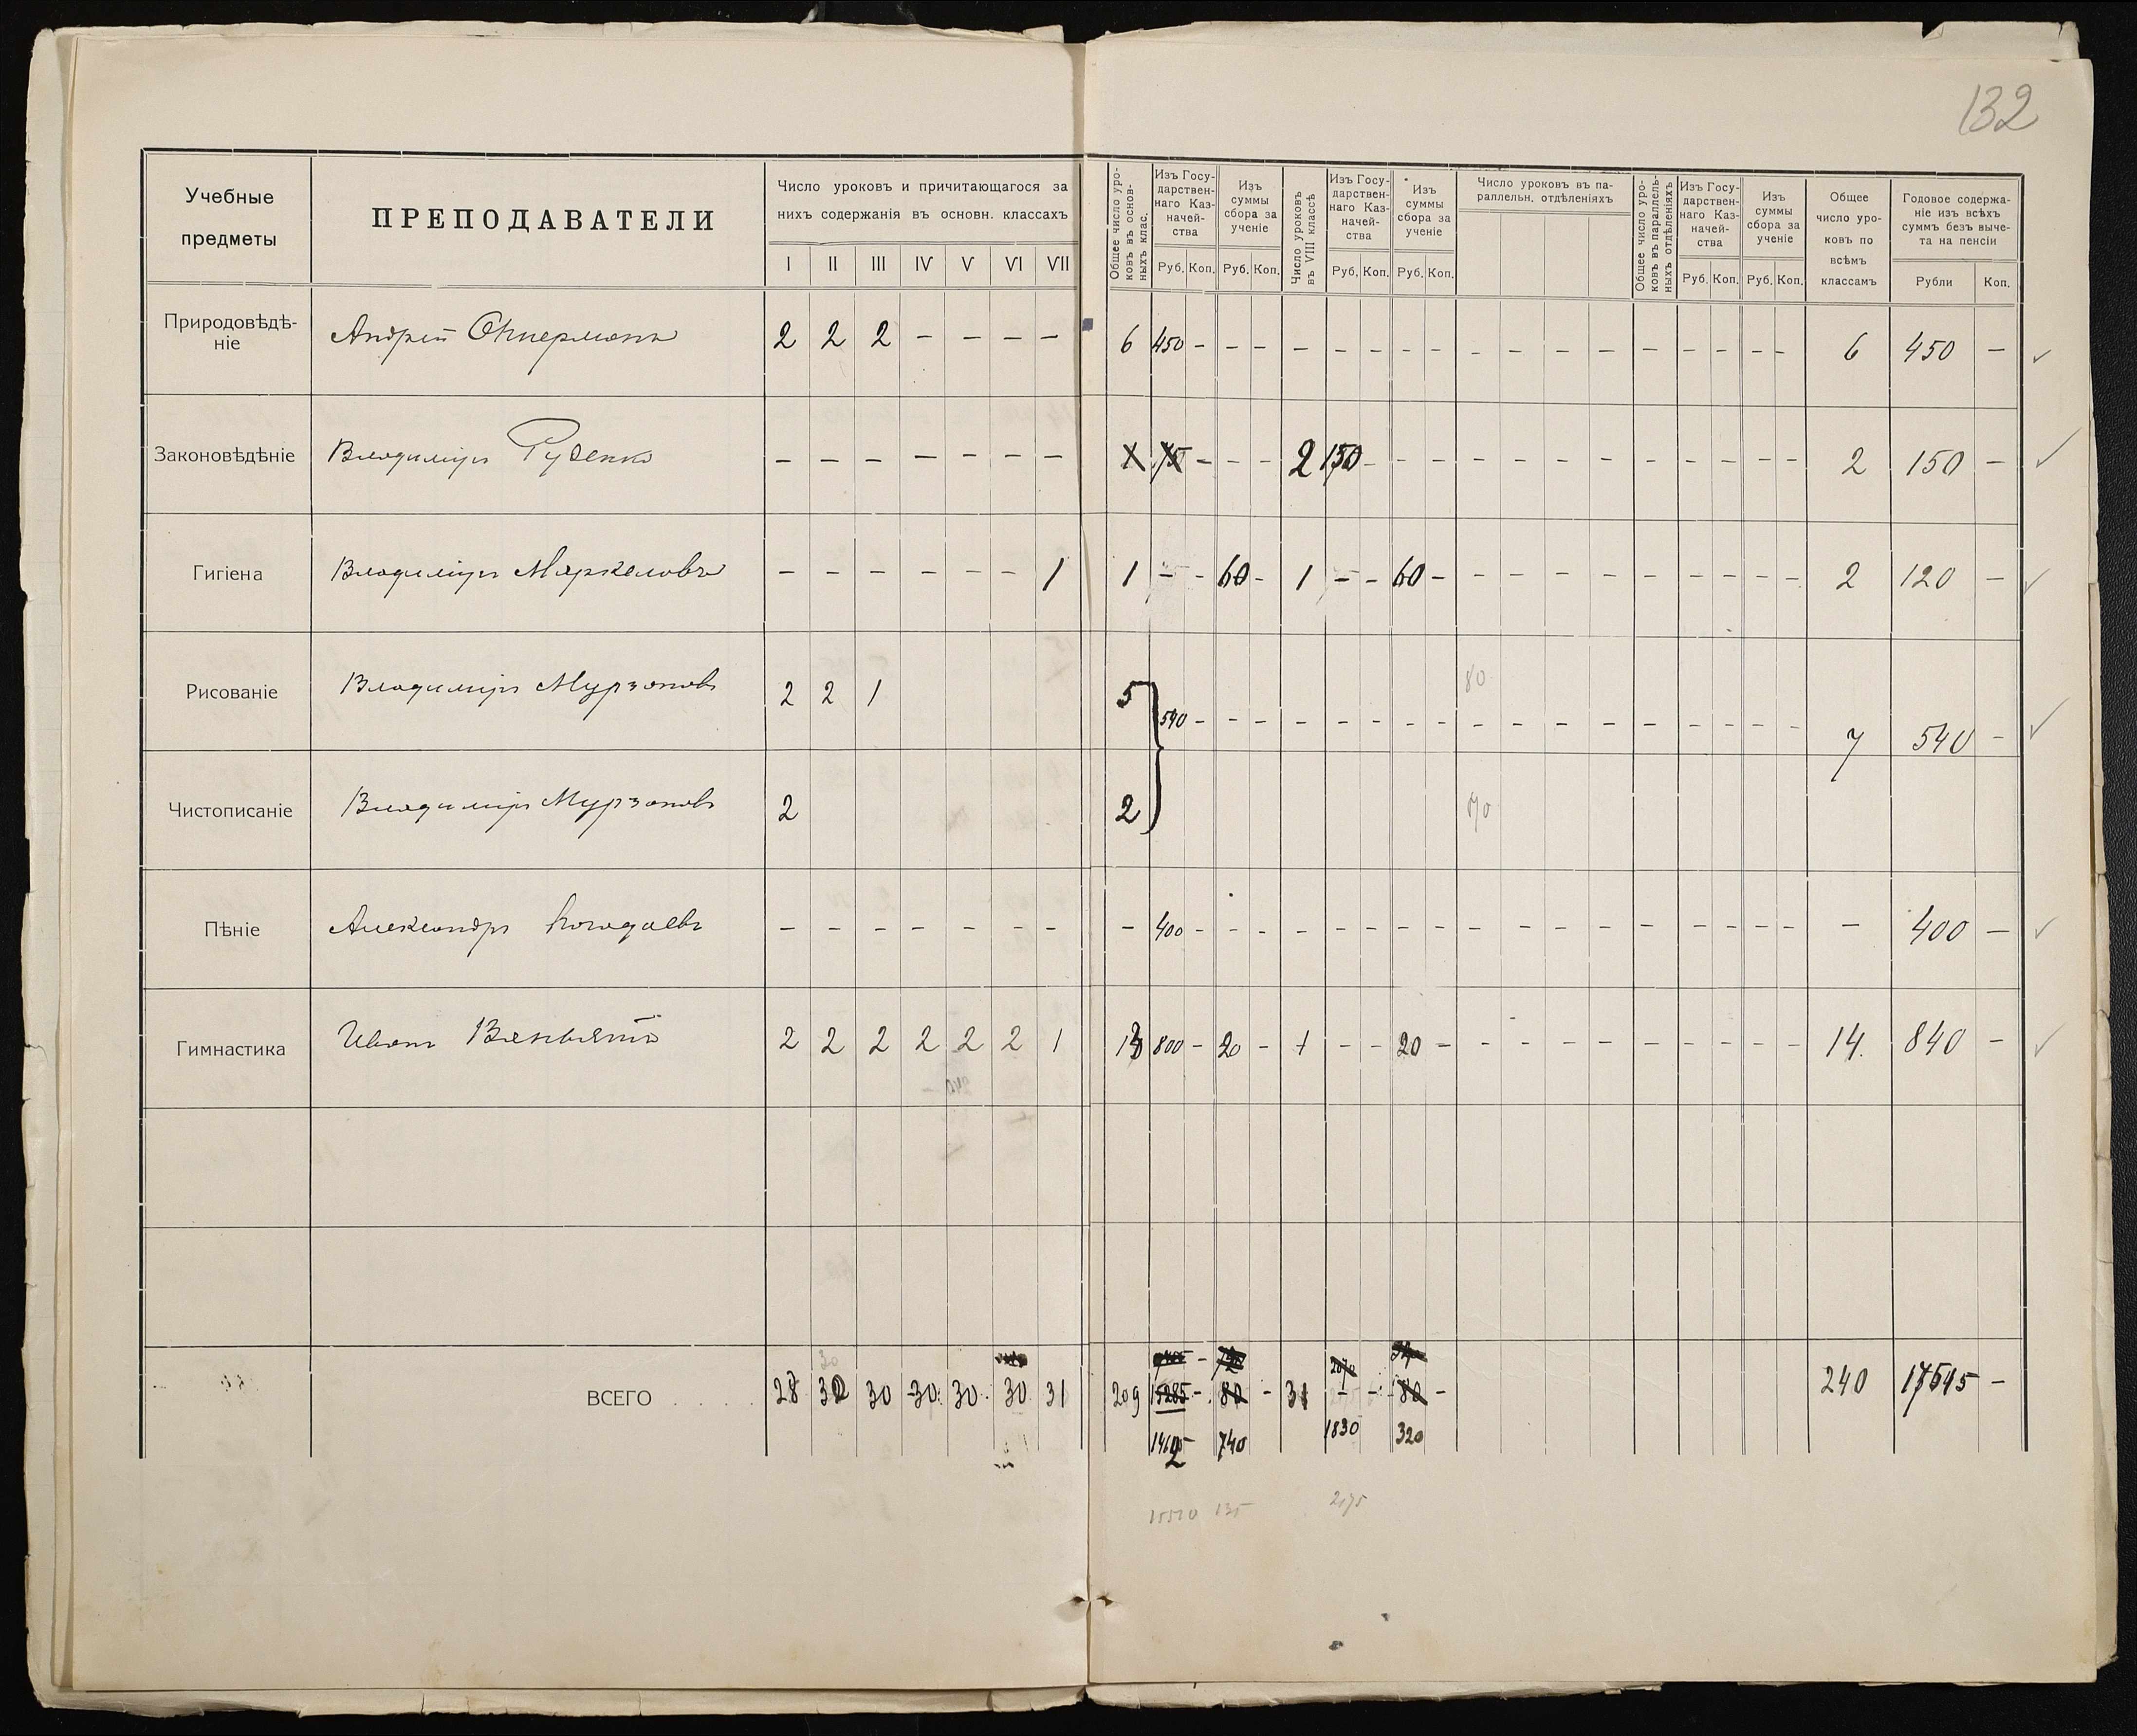 132
Учебные
предметы
ПРЕПОДАВАТЕЛИ
Число уроковъ и причитающагося за
нихъ содержанія въ основн. классахъ
I II III IV V VI VII
Общее число уро-
ковъ въ основ-
ныхъ клас.
Изъ Госу-
дарствен-
наго Каз-
начей-
ства
Руб. Коп.
Изъ
суммы
сбора за
ученіе
Руб. Коп.
Число уроковъ
въ VIII классѣ
Изъ Госу-
дарствен-
наго Каз-
начей-
ства
Руб. Коп.
Изъ
суммы
сбора за
ученіе
Руб. Коп.
Число уроковъ въ па-
раллельн. отдѣленіяхъ
Общее число уро-
ковъ въ параллель-
ныхъ отдѣленіяхъ
Изъ Госу-
дарствен-
наго Каз-
начей-
ства
Руб. Коп.
Изъ
суммы
сбора за
ученіе
Руб. Коп.
Общее
число уро-
ковъ по
всѣмъ
классамъ
Годовое содержа-
ніе изъ всѣхъ
суммъ безъ выче-
та на пенсіи
Рубли Коп.
Природовѣдѣ-
ніе
Андрей 2 2 2 – – – – 6 450 – – – – – – – – – – – – – – – – – 6 450 –
Законовѣдѣніе Владиміръ Руденко – – – – – – – 75 – – – 2 150 – – – – – – – – – – – – 2 150 –
Гигіена Владиміръ Маркеловъ – – – – – – 1 1 – – 60 – 1 – – 60 – – – – – – – – – – 2 120 –
Рисованіе Владиміръ Мурзановъ 2 2 1 5 540 – – – – – – – – – – – – – – – – – 7 540 –
80
Чистописаніе Владиміръ Мурзановъ 2 2
70
Пѣніе Александръ – – – – – – – – 400 – – – – – – – – – – – – – – – – – – 400 –
Гимнастика Иванъ 2 2 2 2 2 2 1 13 800 – 20 – 1 – – 20 – – – – – – – – – – 14 840 –
30
ВСЕГО . . . . 28 30 30 30 30 30 31 209 15285 – 80 – 31 – – 80 – 240 17545 –
740 1830 320
15510 135 2175